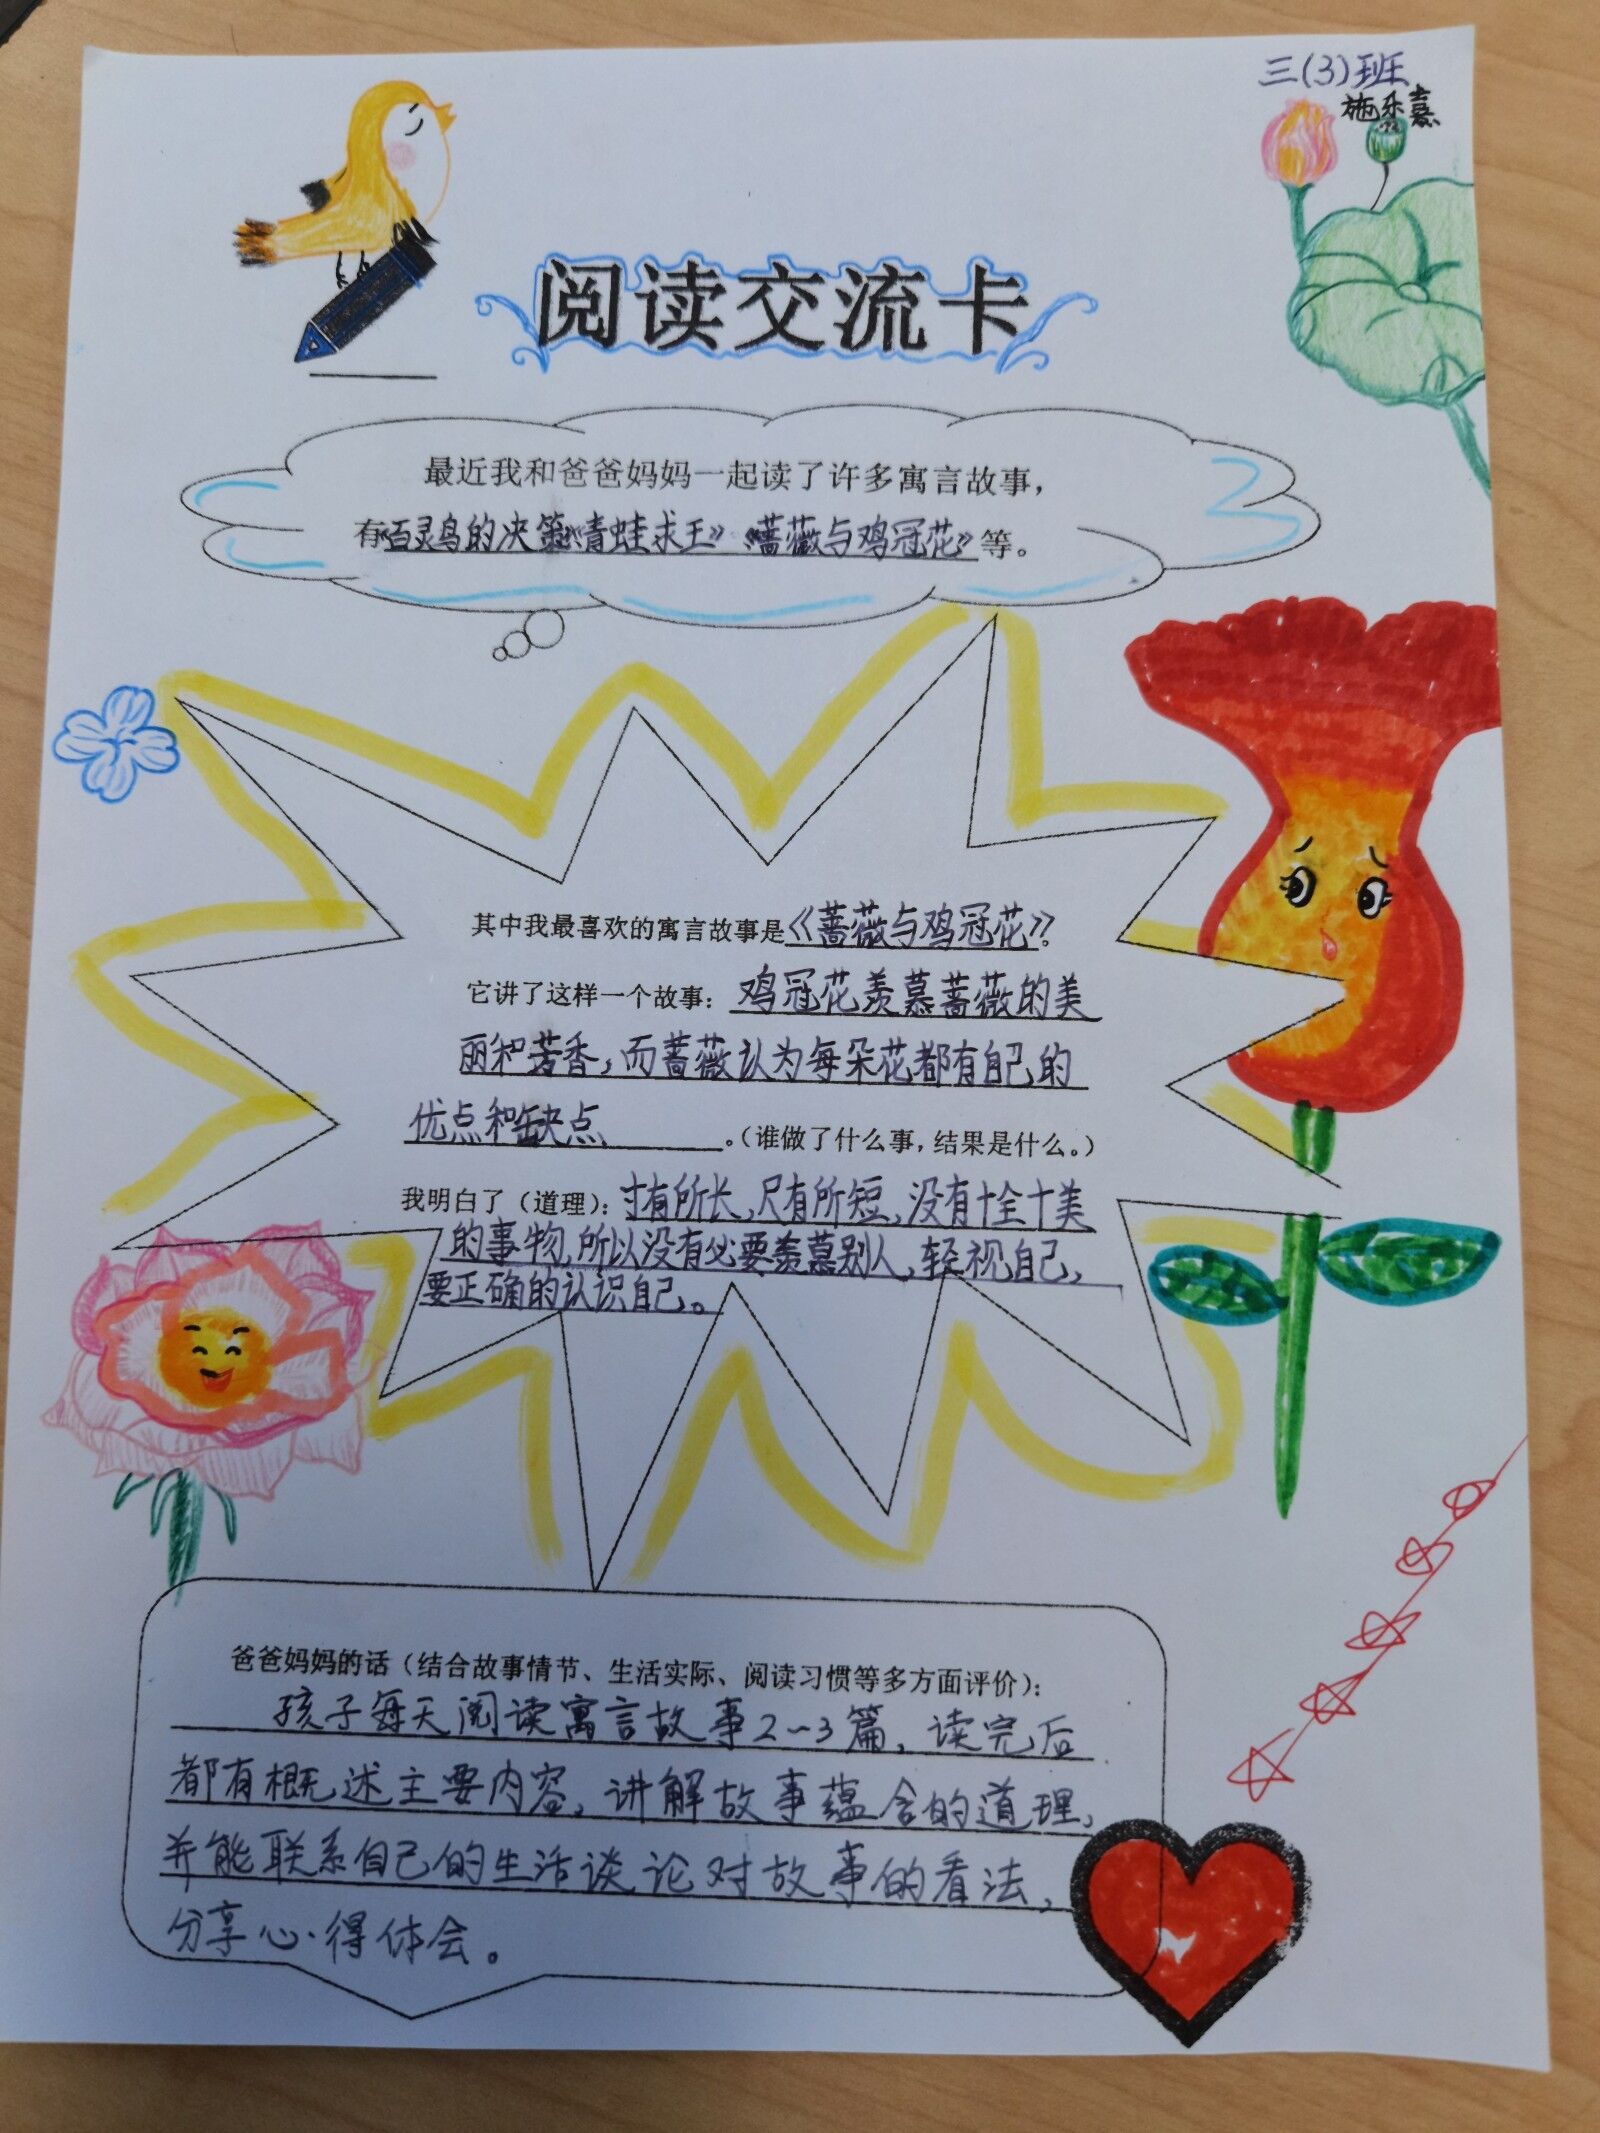 三(3)班
施乐嘉
阅读交流卡
最近我和爸爸妈妈一起读了许多寓言故事，
有《百灵鸟的决策》《青蛙求王》《蔷薇与鸡冠花》等。
其中我最喜欢的寓言故事是《蔷薇与鸡冠花》。
它讲了这样一个故事：鸡冠花羡慕蔷薇的美
丽和芳香，而蔷薇认为每朵花都有自己的
优点和缺点。（谁做了什么事，结果是什么。）
我明白了（道理）：寸有所长，尺有所短，没有十全十美
的事物，所以没有必要羡慕别人，轻视自己，
要正确的认识自己。
爸爸妈妈的话（结合故事情节、生活实际、阅读习惯等多方面评价）：
孩子每天阅读寓言故事2~3篇，读完后
都有概述主要内容，讲解故事蕴含的道理，
并能联系自己的生活谈论对故事的看法，
分享心得体会。